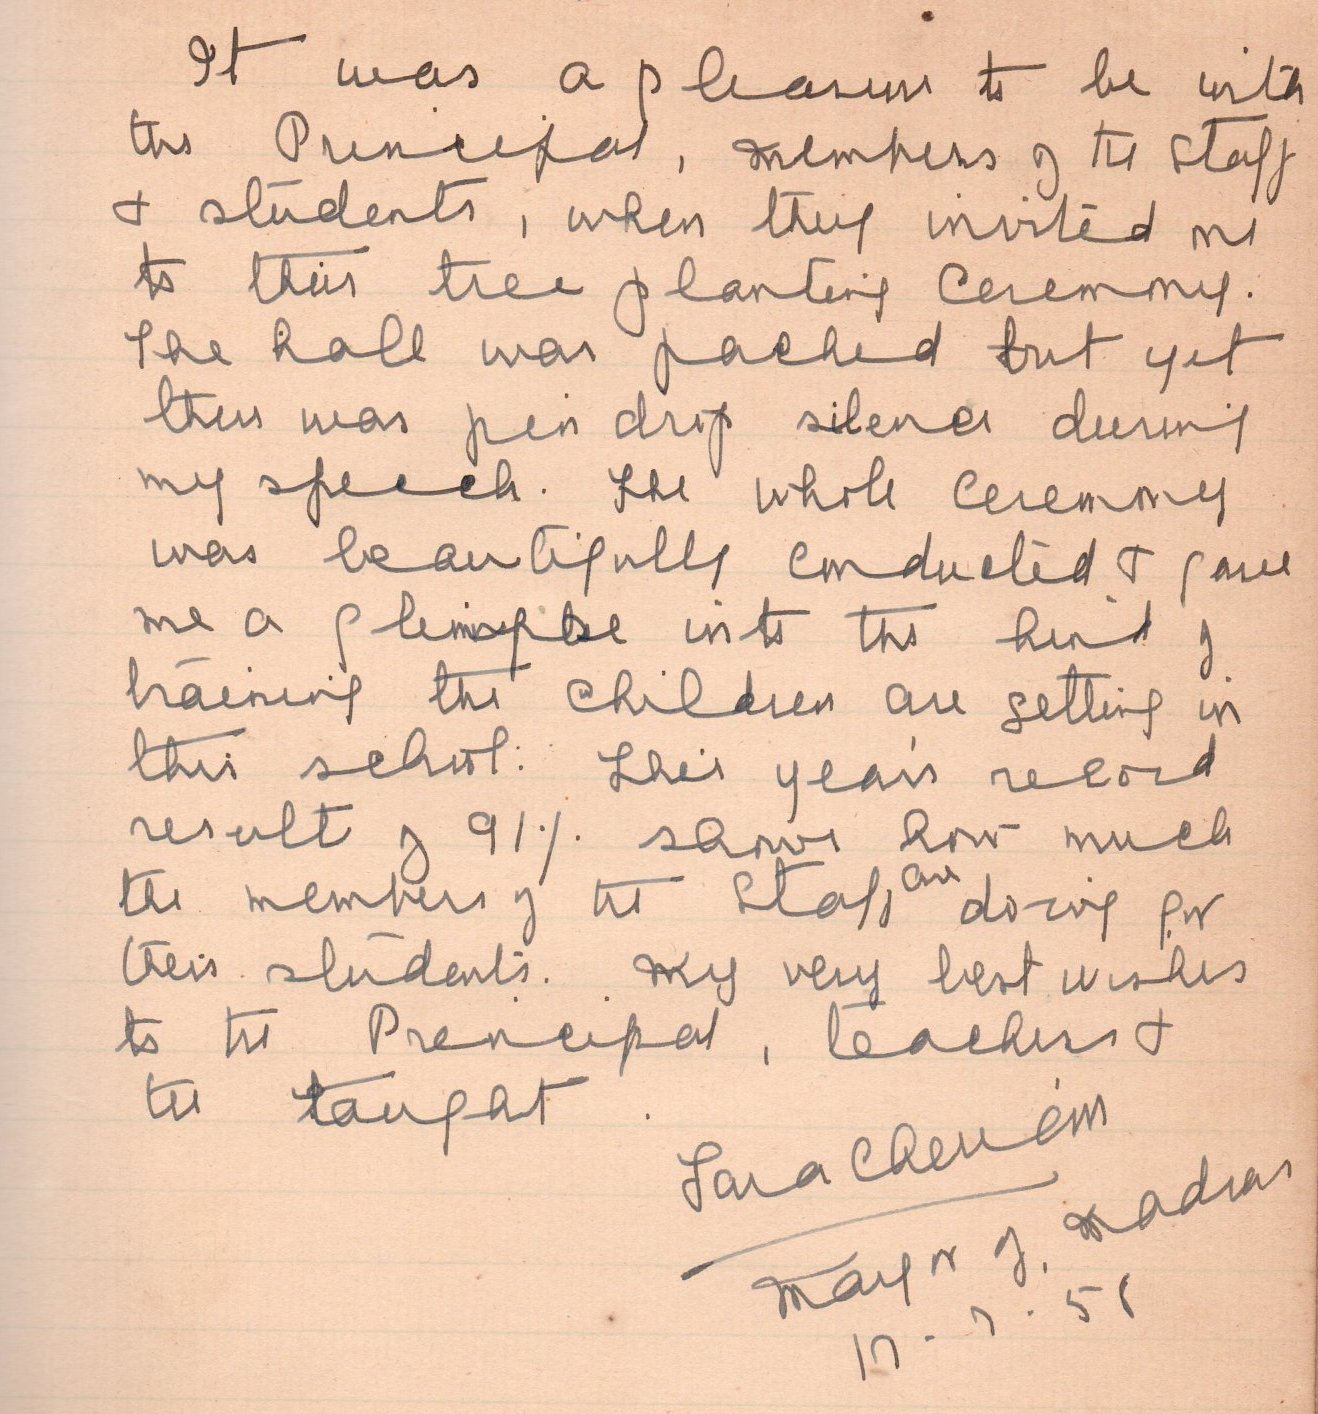 It was a pleasure to be with
the Principal, members of the Staff
& students, when they invited me
to their tree planting Ceremony.
The hall was packed but yet
there was pin drop silence during
my speech. The whole Ceremony
was beautifully conducted & gave
me a glimpse into the kind of
training the children are getting in
this school. This year's record
result of 91% shows how much
the members of the Staff are doing for
their students. My very best wishes
to the Principal, teachers &
the taught.
Tara Cherian
Mayor of Madras
17.7.56